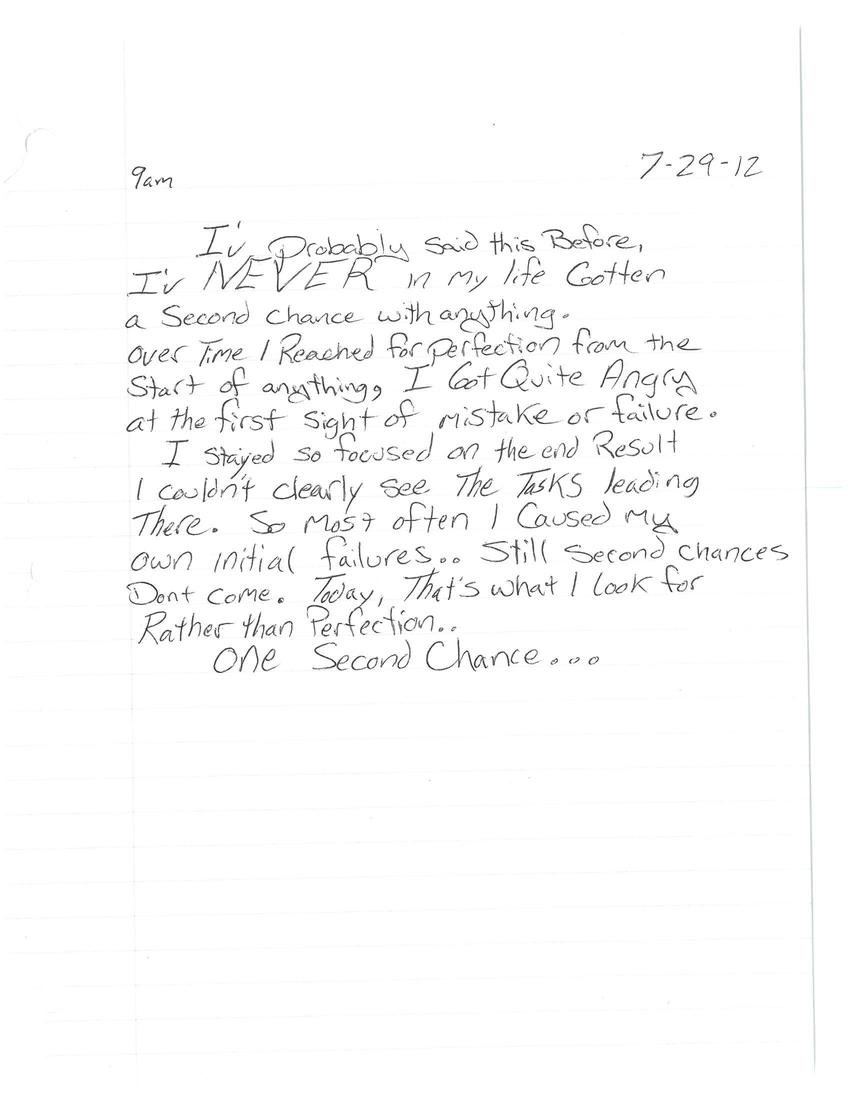 9am
7-29-12
I'v Probably Said this Before,
I'v NEVER in my life Gotten
a Second chance with anything.
over Time I Reached for perfection from the
Start of anything, I Got Quite Angry
at the first Sight of mistake or failure.
I stayed so focused on the end Result
I couldn't clearly see The Tasks leading
There. So most often I Caused my
own initial failures.. Still Second chances
Dont come. Today, That's what I look for
Rather than Perfection..
One Second Chance...